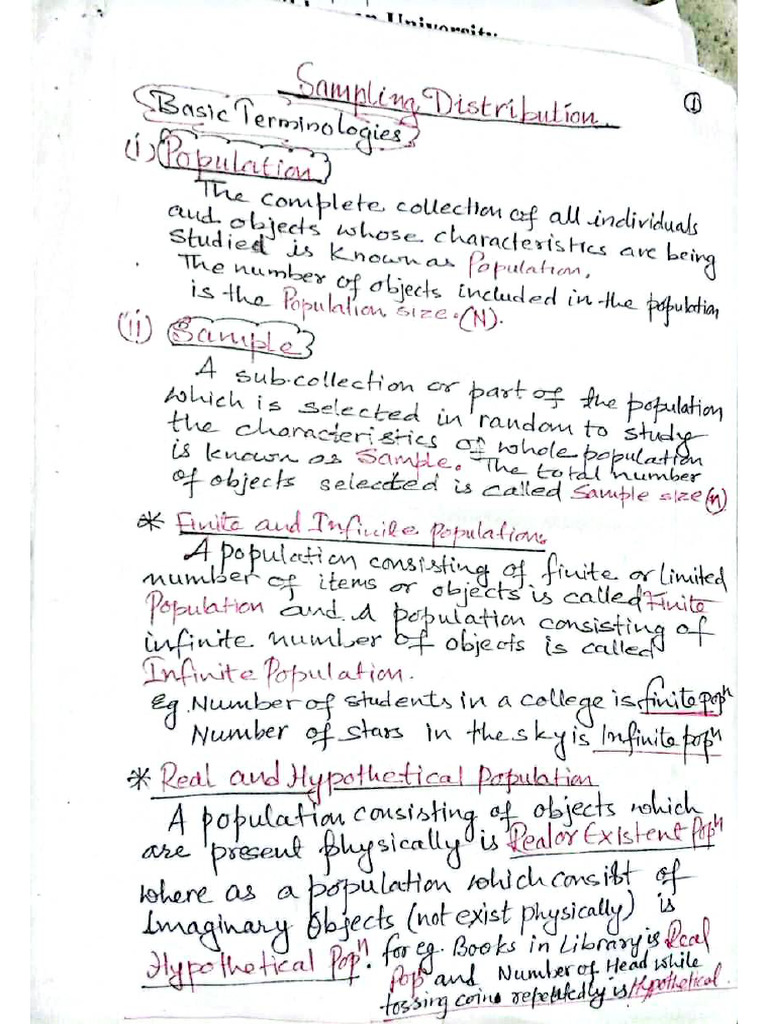 University
Sampling Distribution
①
Basic Terminologies
(i) Population
The complete collection of all individuals
and objects whose characteristics are being
studied is known as Population.
The number of objects included in the population
is the Population size.(N).
(ii) Sample
A sub-collection or part of the population
which is selected in random to study
the characteristics of whole population
is known as Sample. The total number
of objects selected is called Sample size (n)
* Finite and Infinite Population.
A population consisting of finite or limited
number of items or objects is called Finite
Population and A population consisting of
infinite number of objects is called
Infinite Population.
Eg. Number of students in a college is finite popⁿ
Number of stars in the sky is Infinite popⁿ
* Real and Hypothetical Population
A population consisting of objects which
are present physically is Real or Existent Popⁿ
where as a population which consist of
Imaginary Objects (not exist physically) is
Hypothetical Popⁿ. for eg. Books in Library is Real
Popⁿ and Number of Head while
tossing coins repeatedly is Hypothetical.